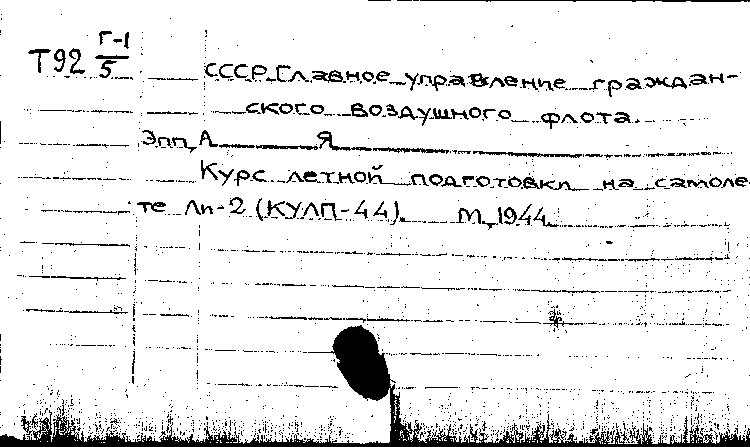 Т92 Г-1/5
СССР. Главное управление граждан-
ского воздушного флота.
Эпп, А Я
Курс летной подготовки на самоле
те Ли-2 (КУЛП-44). М., 1944.